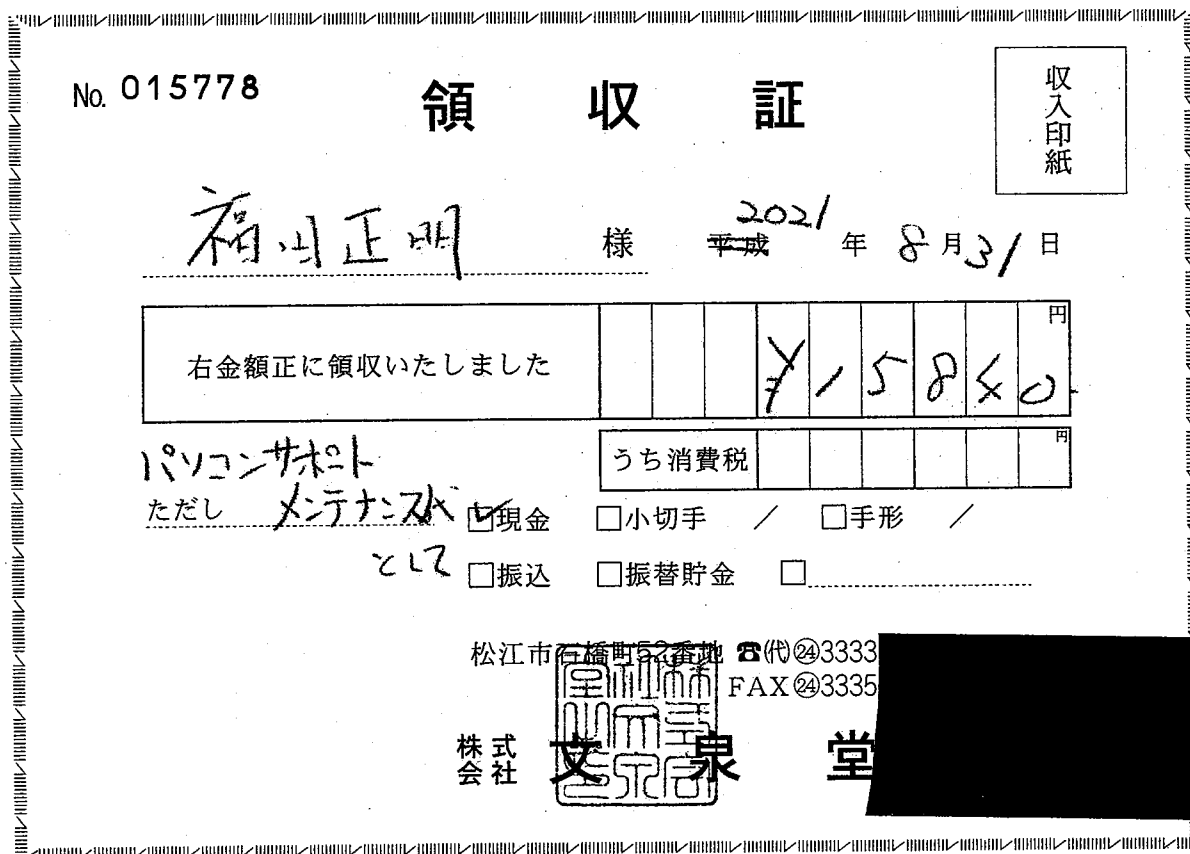 No. 015778
領収証
収入印紙
福田正明 様
平成 2021 年 8 月 31 日
右金額正に領収いたしました
¥15840 円
うち消費税 円
パソコンサポート
ただし メンテナンス代
として
☑現金 □小切手 / □手形 /
□振込 □振替貯金 □
松江市石橋町52番地 ☎(代)㉔3333
FAX㉔3335
株式会社 文泉堂